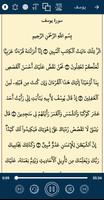 يوسف
سورة يوسف
بِسْمِ اللَّهِ الرَّحْمَنِ الرَّحِيمِ
الر تِلْكَ آيَاتُ الْكِتَابِ الْمُبِينِ إِنَّا أَنْزَلْنَاهُ قُرْآنًا عَرَبِيًّا
لَعَلَّكُمْ تَعْقِلُونَ نَحْنُ نَقُصُّ عَلَيْكَ أَحْسَنَ الْقَصَصِ بِمَا
أَوْحَيْنَا إِلَيْكَ هَذَا الْقُرْآنَ وَإِنْ كُنْتَ مِنْ قَبْلِهِ لَمِنَ
الْغَافِلِينَ إِذْ قَالَ يُوسُفُ لِأَبِيهِ يَا أَبَتِ إِنِّي رَأَيْتُ
أَحَدَ عَشَرَ كَوْكَبًا وَالشَّمْسَ وَالْقَمَرَ رَأَيْتُهُمْ لِي
سَاجِدِينَ قَالَ يَا بُنَيَّ لَا تَقْصُصْ رُؤْيَاكَ عَلَى إِخْوَتِكَ
فَيَكِيدُوا لَكَ كَيْدًا إِنَّ الشَّيْطَانَ لِلْإِنْسَانِ عَدُوٌّ مُبِينٌ
وَكَذَلِكَ يَجْتَبِيكَ رَبُّكَ وَيُعَلِّمُكَ مِنْ تَأْوِيلِ الْأَحَادِيثِ